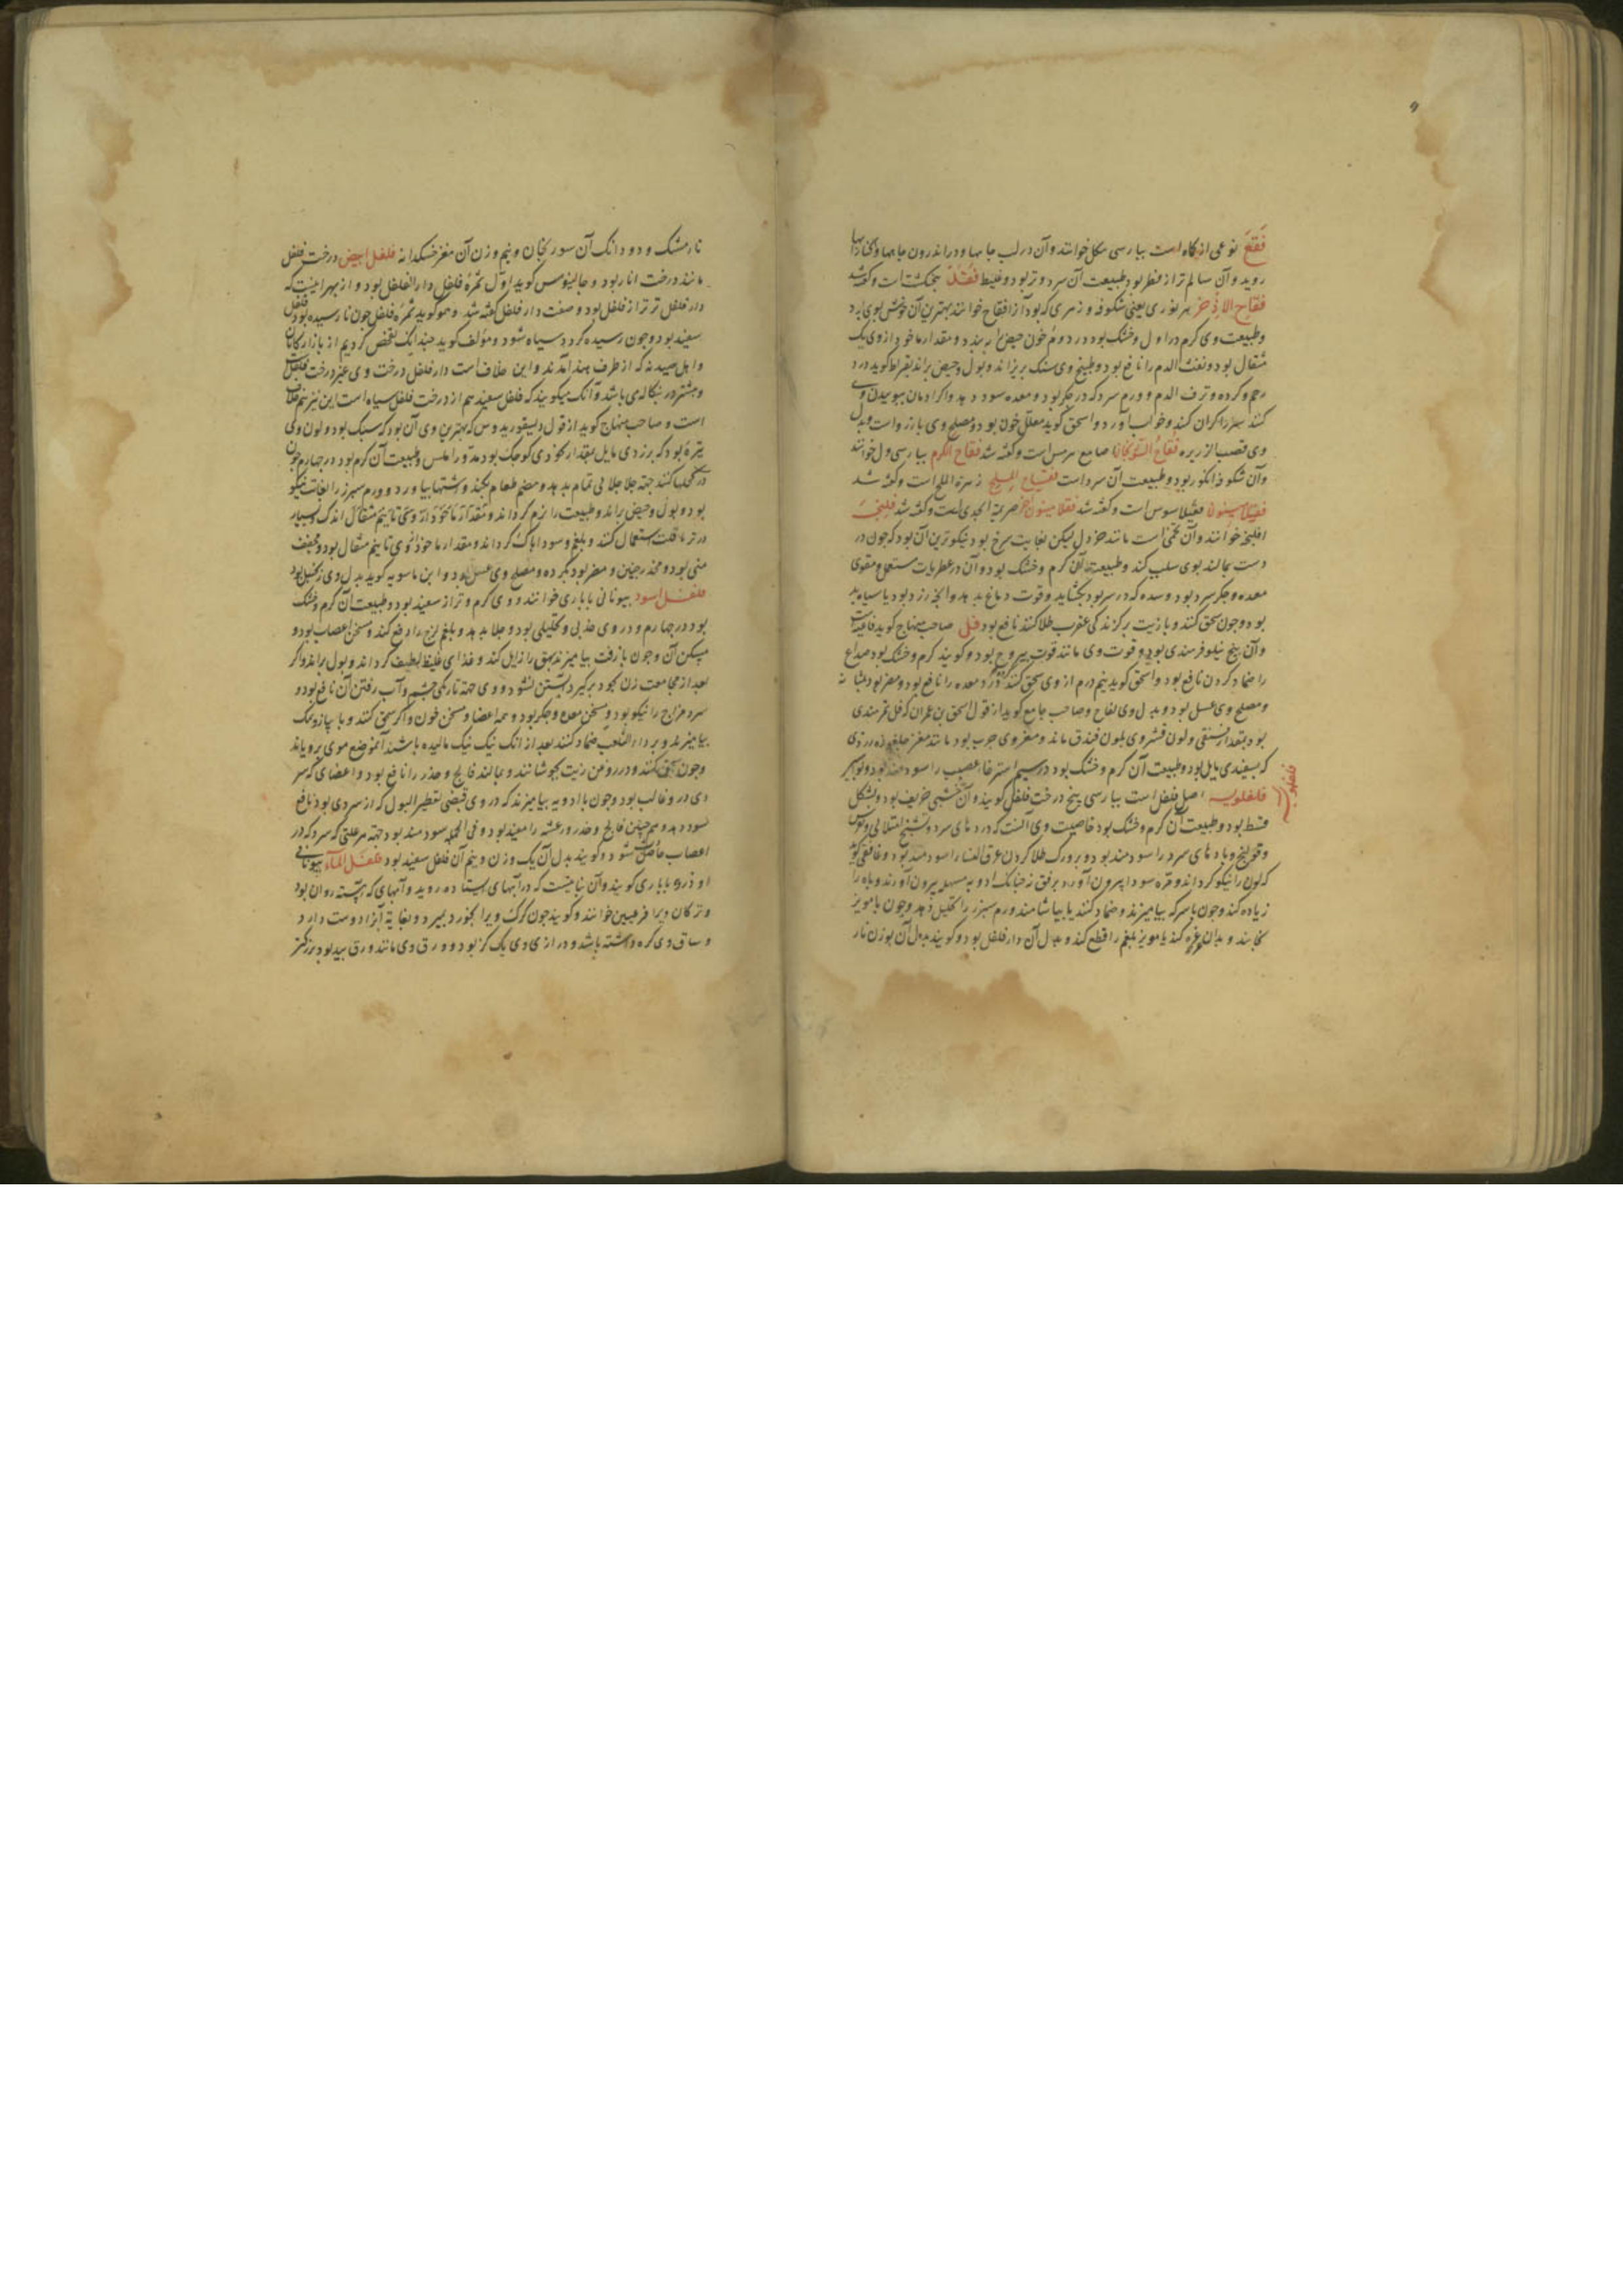 فقع نوعی از کاه است بپارسی سکل خوانند و آن در لب جا مها و در اندرون جامها و کنارها
روید و آن سالم تر از فطر بود طبیعت آن سرد و تر بود و غلیظ فقد پنجنکشت است و گفته شد
فقاح الاذخر هر نوری یعنی شکوفه و زهری که بود آنرا فقاح خوانند بهترین آن خوش بوی بود
و طبیعت وی کرم در اول و خشک بود در دوم خون حیض را ببندد و مقدار ماخوذ از وی یک
مثقال بود و نفث الدم را نافع بود و طبیخ وی سنک بریزاند و بول و حیض براند بقراط کوید درد
رحم و کرده و نزف الدم و ورم سرد که در جکر بود و معده سود دهد و اکر ادمان بوییدن وی
کنند سر را کران کند و خواب آورد و اسحق کوید مقلل خون بود و مصلح وی بارزد است و بدل
وی قصب الزریره فقاح الکرم بپارسی ول خوانند
و آن شکوفه انکور بود و طبیعت آن سرد است فقاح الملح زهرة الملح است و گفته شد
است و گفته شد فلنجه
افلنجه خوانند و آن تخمی است مانند خردل لیکن بغایت سرخ بود نیکوترین آن بود که چون در
دست بمالند بوی سیب کند و طبیعت آن کرم و خشک بود و آن در عطریات مستعمل مقوی
معده و جکر سرد بود و سده که در سر بود بکشاید و قوت دماغ بدهد
بود و چون سحق کنند و با زیت بر کزندکی عقرب طلا کنند نافع بود فل صاحب منهاج کوید
و آن بیخ نیلوفر هندی بود و قوت وی مانند قوت یبروح بود و کویند کرم و خشک بود صداع
را ضماد کردن نافع بود و اسحق کوید نیم درم از وی سحق کنند درد معده را نافع بود و مضر بود بمثانه
و مصلح وی عسل بود و بدل وی لفاح و صاحب جامع کوید از قول اسحق بن عمران که فل ثمر هندی
بود بمقدار فستقی و لون قشر وی بلون فندق ماند و مغز وی چرب بود مانند مغز
که بسفیدی مایل بود و طبیعت آن کرم و خشک بود در سیم استرخاء عصب را سود مند بود
فلفلمویه اصل فلفل است بپارسی بیخ درخت فلفل کویند و آن خشبی حریف بود و بشکل
قسط بود و طبیعت آن کرم و خشک بود خاصیت وی آنست که دردهای سرد و تشنج امتلائی و نقرس
و قولنج و بادهای سرد را سودمند بود و برورک طلا کردن عرق النسا را سودمند بود و غافقی کوید
که لون را نیکو کرداند و مره سودا بیرون آورد برفق
زیاده کند و چون با سرکه بیامیزند و ضماد کنند یا بیاشامند ورم سپرز را تحلیل دهد و چون با مویز
بخایند و بدان غرغره کنند یا مویز بلغم را قطع کند و بدل آن دار فلفل بود و کویند بدل آن بوزن نار
فلفلمویه
نارمشک و دو دانک آن سورنجان و نیم وزن آن مغز خسکدانه فلفل ابیض درخت فلفل
مانند درخت انار بود و جالینوس کوید اول ثمرهٔ فلفل دار الفلفل بود و از بهر اینست که
دار فلفل تر تر از فلفل بود و صفت دار فلفل گفته شد و هم او کوید ثمرهٔ فلفل چون نارسیده بود فلفل
سفید بود و چون رسیده کردد سیاه شود و مولف کوید چندانک تفحص کردیم از بازارکانان
و اهل صیدنه که از طرف هند آمدند و این خلاف است دار فلفل درخت وی غیر درخت فلفل است
و بیشتر در بنکاله می باشد و آنک میکویند که فلفل سفید هم از درخت فلفل سیاه است این نیز هم خلاف
است و صاحب منهاج کوید از قول دیسقوریدوس که بهترین وی آن بود که سبک بود و لون وی
تیره بود که بزردی مایل بمقدار نخودی کوچک بود مدور املس و طبیعت آن کرم بود در چهارم چون
در کحلها کنند جهة جلا جلایی تمام بدهد و هضم طعام بکند و اشتها بیاورد و ورم سپرز را بغایت نیکو
بود و بول و حیض براند و طبیعت را نرم کرداند و مقدار ماخوذ از وی تا نیم مثقال اندک و بسیار
استعمال کنند و بلغم و سودا پاک کرداند و مقدار ماخوذ از وی تا نیم مثقال بود و مجفف
منی بود و مخدر جنین و مضر بود بکرده و مصلح وی عسل بود و ابن ماسویه کوید بدل وی زنجبیل بود
فلفل اسود بیونانی باباری خوانند و وی کرم و تر از سفید بود و طبیعت آن کرم و خشک
بود در چهارم و در وی جذبی و تحلیلی بود و جلا بدهد و بلغم لزج را دفع کند و مسخن اعصاب بود و
مسکن آن و چون با زفت بیامیزند بهق را زایل کند و غذای غلیظ لطیف کرداند و بول براند و اکر
بعد از مجامعت زن بخود برکیرد آبستن نشود و وی جهة تاریکی چشم و آب رفتن آن نافع بود و
سرد مزاج را نیکو بود و مسخن معده و جکر بود و همه اعضا و مسخن خون و اکر سحق کنند و با پیاز و نمک
بیامیزند و بر داء الثعلب ضماد کنند بعد از انک نیک نیک مالیده باشند آن موضع موی برویاند
و چون سحق کنند و در روغن زیت بجوشانند و بمالند فالج و خدر را نافع بود و اعضای که سر
دی در و غالب بود و چون با ادویه بیامیزند که در وی قبضی تقطیر البول که از سردی بود نافع
بود و همچنین فالج و خدر و رعشه را مفید بود و فی الجمله سودمند بود جهة هر علتی که سرد که در
اعصاب حاصل شود و کویند بدل آن یک وزن و نیم آن فلفل سفید بود فلفل الماء بیونانی
او دری باباری کویند و آن نباتیست که در آبهای ایستاده روید و آبهای که آهسته روان بود
و ترکان ویرا خوانند و کویند چون کرک ویرا بخورد بمیرد و بغایة آنرا دوست دارد
و ساق وی کره داشته باشد و درازی وی یک کز بود و ورق وی مانند ورق بید بود بزرکتر